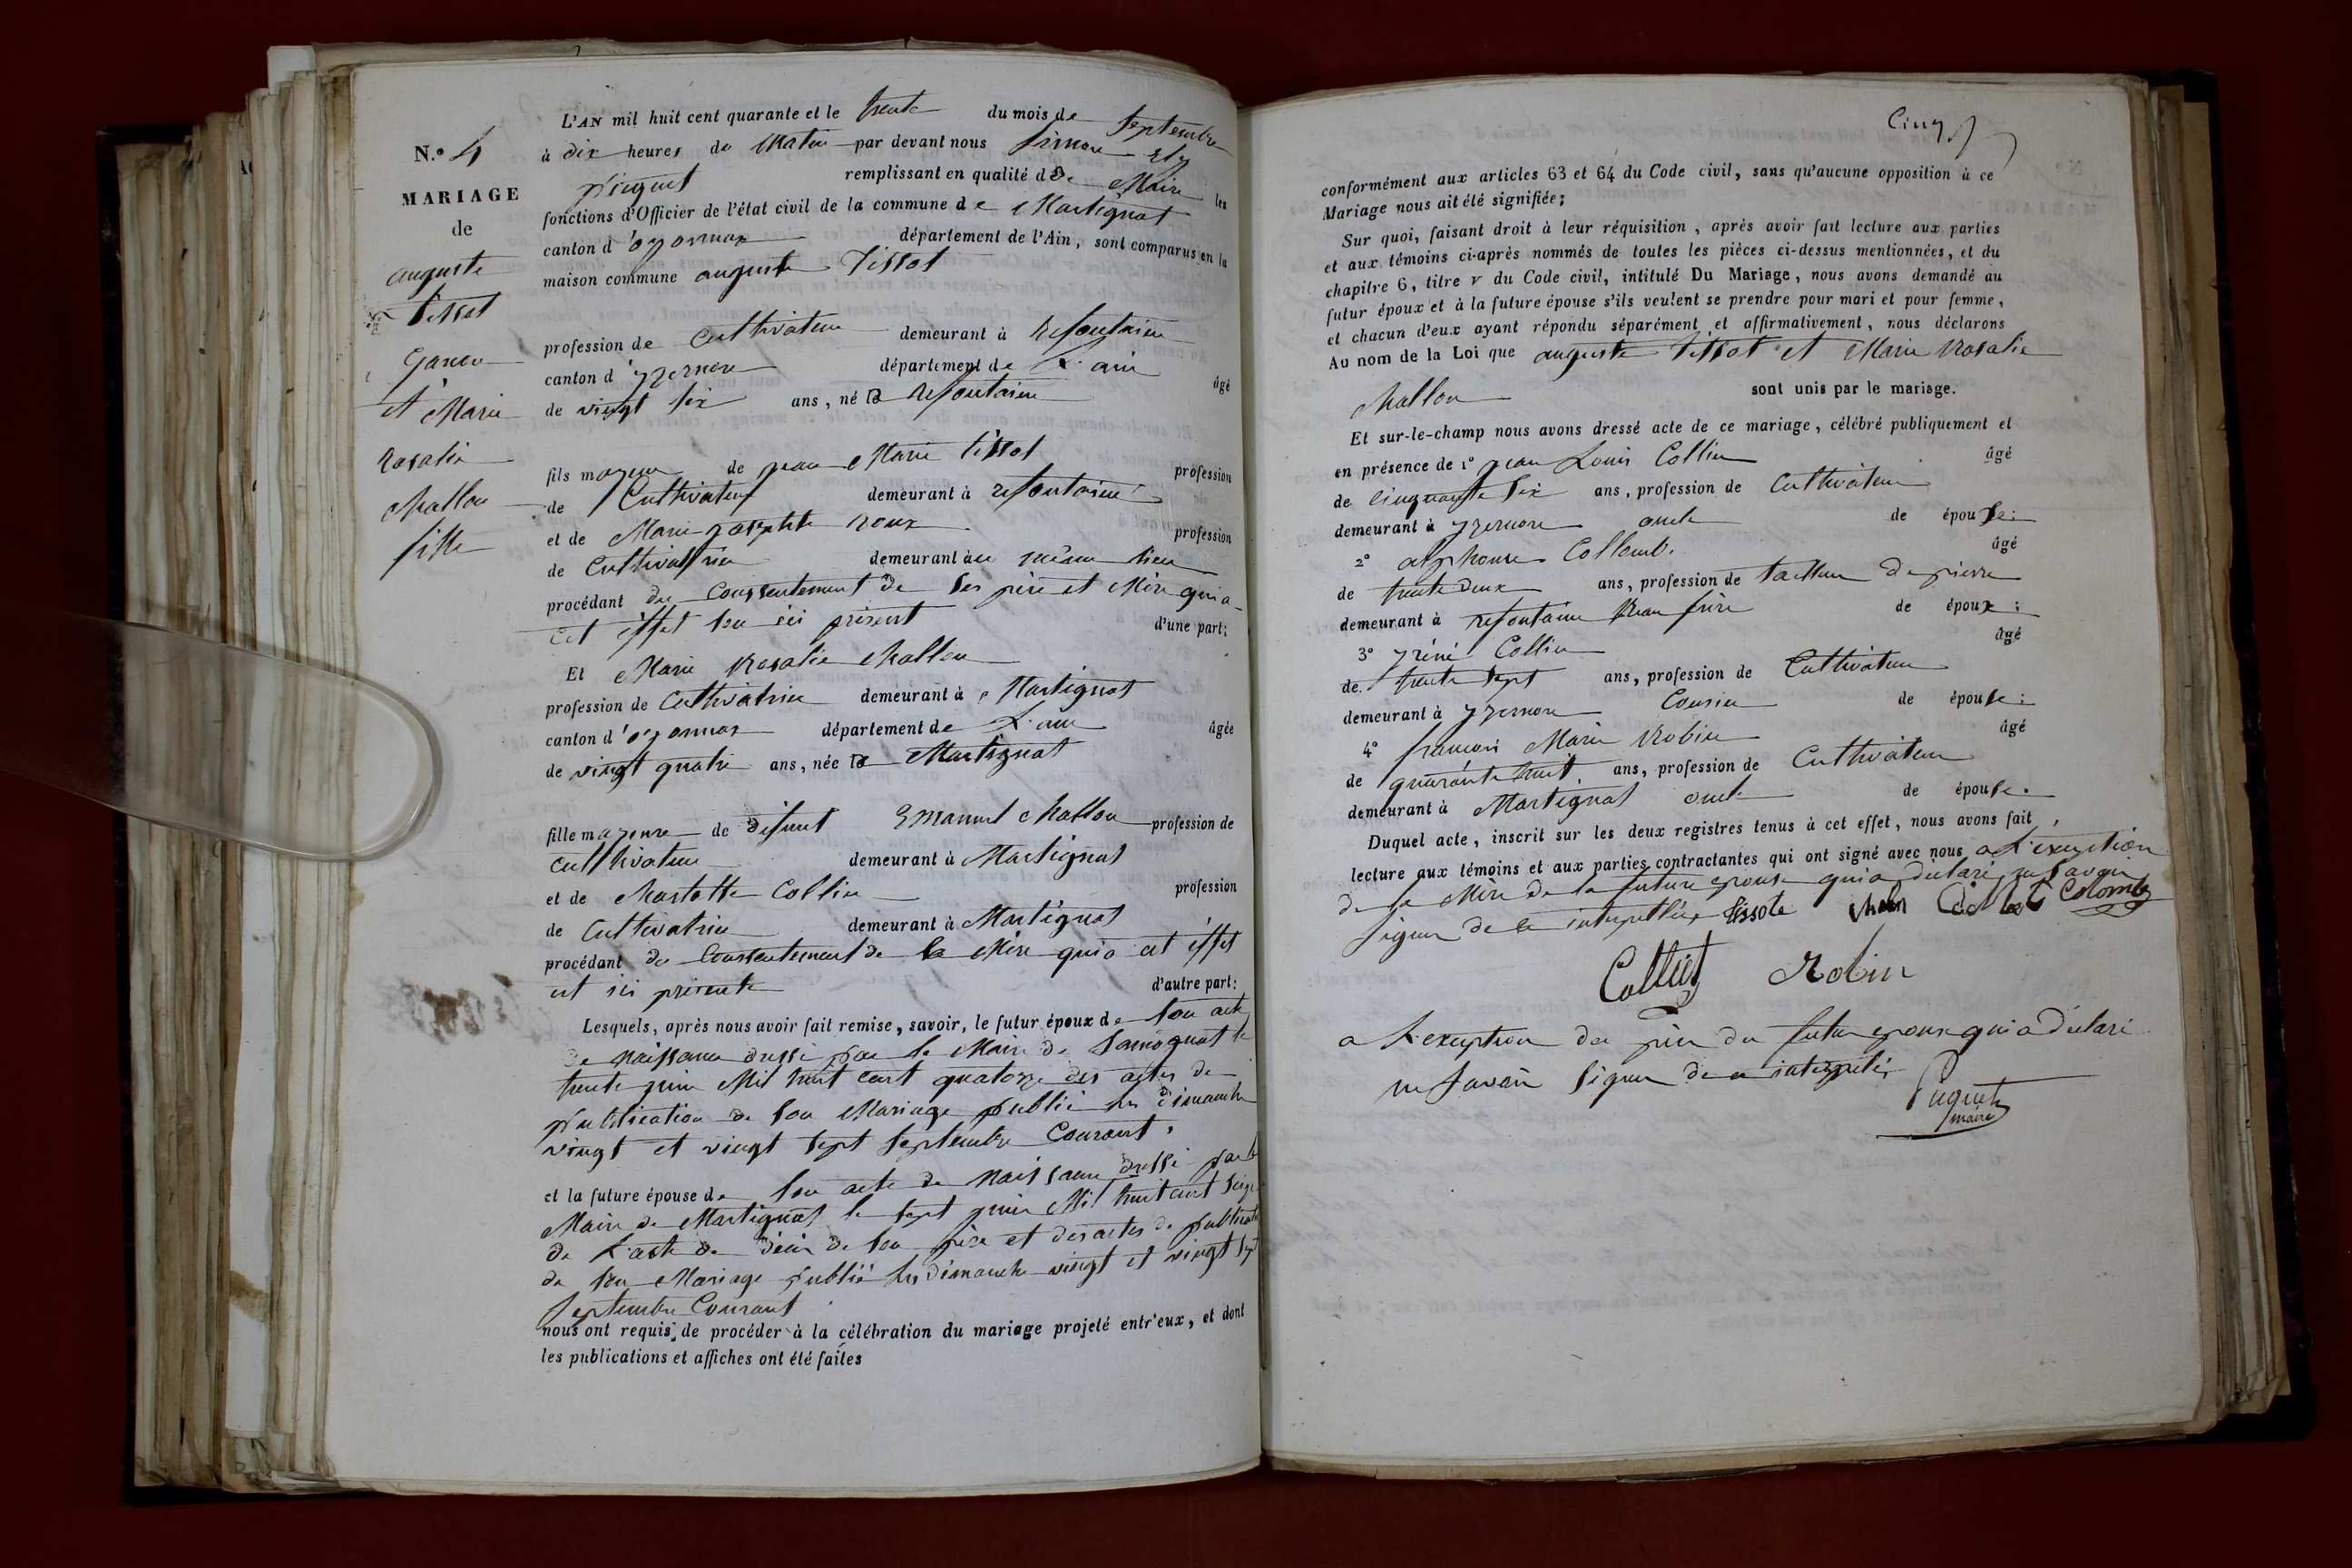 N.° 4
MARIAGE
de
auguste
tissot
Garcon
et Marie
Rosalie
Mallon
fille
L'AN mil huit cent quarante et le trente du mois de Septembre
à dix heures du Matin par devant nous Simon Ely
piquet remplissant en qualité de Maire les
fonctions d'Officier de l'état civil de la commune de Martignat
canton d'oyonnax département de l'Ain, sont comparus en la
maison commune auguste tissot
profession de Cultivateur demeurant à
canton d'yzernore département de L'ain âgé
de vingt six ans, né
fils majeur de jean Marie tissot profession
de Cultivateur demeurant à
et de Marie josephte roux profession
de Cultivatrice demeurant au même lieu
procédant du Conssentement de ses père et Mère qui a
cet effet son ici présent d'une part;
Et Marie Rosalie Mallon
profession de Cultivatrice demeurant à Martignat
canton d'oyonnax département de L'ain âgée
de vingt quatre ans, née a Martignat
fille majeure de défunt Emanuel Mallon profession de
cultivateur demeurant à Martignat
et de Collin profession
de Cultivatrice demeurant à Martignat
procédant du Conssentement de la Mère qui a cet effet
est ici présente d'autre part:
Lesquels, après nous avoir fait remise, savoir, le futur époux de son acte
de Naissance dressé par le Maire de Samognat le
trente juin Mil huit cent quatorze des actes de
publication de son Mariage publié les dimanche
vingt et vingt sept Septembre Courant.
et la future épouse de son acte de Naissance dressé par le
Maire de Martignat le sept juin Mil huit cent seize
de L'acte de décès de son père et des actes de
de son Mariage publié les dimanche vingt et vingt sept
Septembre Courant
nous ont requis de procéder à la célébration du mariage projeté entr'eux, et dont
les publications et affiches ont été faites
Cinq
conformément aux articles 63 et 64 du Code civil, sans qu'aucune opposition à ce
Mariage nous ait été signifiée;
Sur quoi, faisant droit à leur réquisition, après avoir fait lecture aux parties
et aux témoins ci-après nommés de toutes les pièces ci-dessus mentionnées, et du
chapitre 6, titre v du Code civil, intitulé Du Mariage, nous avons demandé au
futur époux et à la future épouse s'ils veulent se prendre pour mari et pour femme,
et chacun d'eux ayant répondu séparément et affirmativement, nous déclarons
Au nom de la Loi que auguste tissot et Marie Rosalie
Mallon sont unis par le mariage.
Et sur-le-champ nous avons dressé acte de ce mariage, célébré publiquement et
en présence de 1° jean Louis Collin âgé
de cinquante six ans, profession de Cultivateur
demeurant à yzernore oncle de épouse:
2° alphonse Collomb. âgé
de trente deux ans, profession de tailleur de pierre
demeurant à Beau frère de époux;
3° Collin âgé
de trente sept ans, profession de Cultivateur
demeurant à yzernore Cousin de épouse:
4° francois Marie Robin âgé
de quarante huit. ans, profession de Cultivateur
demeurant à Martignat oncle de épouse.
Duquel acte, inscrit sur les deux registres tenus à cet effet, nous avons fait
lecture aux témoins et aux parties contractantes qui ont signé avec nous a L'exeption
de la Mère de la future epouse qui a déclaré ne savoir
signer de ce interpellée tissote Colomb
Robin
a L'exeption du père du futur epoux qui a déclaré
ne savoir signer de ce interpellé
Piquet
maire